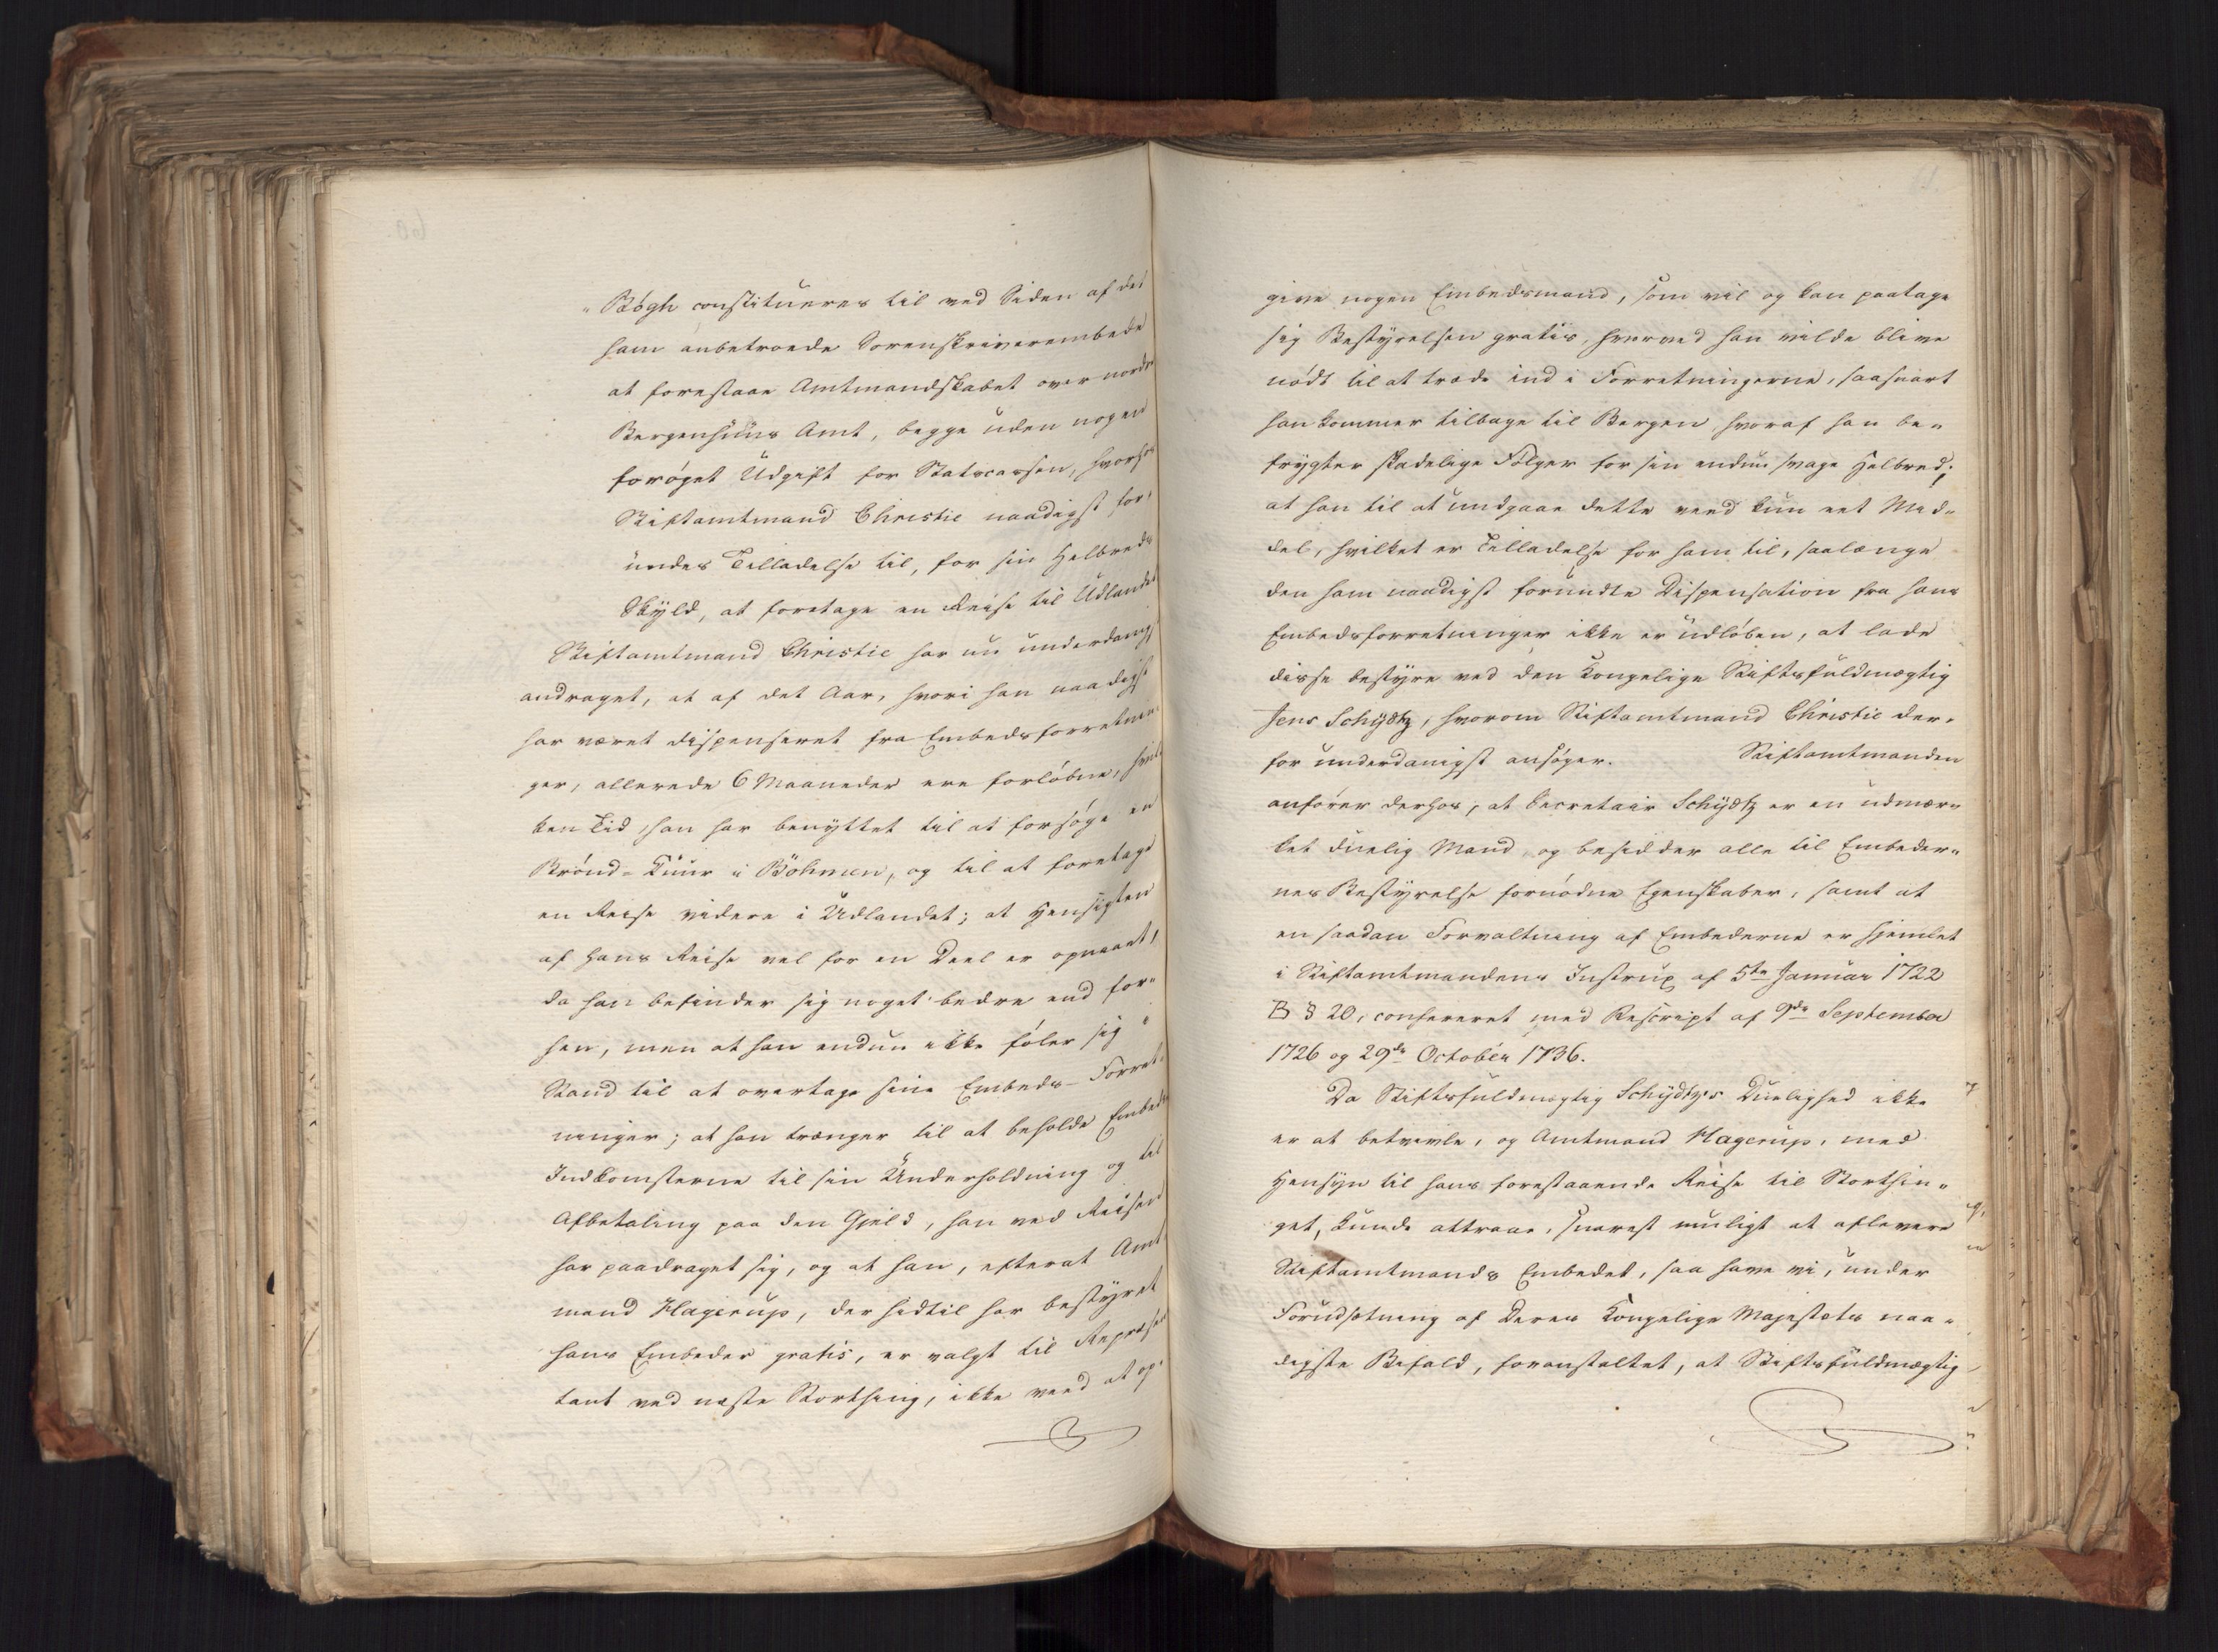 "Bøgh constitueres til ved Siden af det
ham anbetroede Sorenskriverembede
at forestaae Amtmandskabet over nordre
Bergenhuus Amt, begge uden nogen
forøget Udgift for Statscassen, hvorhos
Stiftamtmand Christie naadigst for¬
undes Tilladelse til, for sin Helbreds
Skyld, at foretage en Reise til Udlandet
Stiftamtmand Christie har nu underdanigst
andraget, at af det Aar, hvori han naadigst
har været dispenseret fra Embedsforretnin¬
ger, allerede 6 Maaneder ere forløbne, hvil¬
ken Tid, han har benyttet til at forsøge en
Brønd-Kuur i Böhmen, og til at foretage
en Reise videre i Udlandet; at Hensigten
af hans Reise vel for en Deel er opnaaet,
da han befinder sig noget bedre end for¬
hen, men at han endnu ikke føler sig i
Stand til at overtage sine Embeds-Forret¬
ninger; at han trænger til at beholde Embeds
Indkomsterne til sin Underholdning og til
Afbetaling paa den Gjeld, han ved Reisen
har paadraget sig, og at han, efterat Amt¬
mand Hagerup, der hidtil har bestyret
hans Embeder gratis, er valgt til Repræsen
tant ved næste Storthing, ikke veed at op¬
give nogen Embedsmand, som vil og kan paatage
sig Bestyrelsen gratis, hvorved han vilde blive
nødt til at træde ind i Forretningerne, saasnart
han kommer tilbage til Bergen, hvoraf han be¬
frygter skadelige Følger for sin endnu svage Helbred;
at han til at undgaae dette veed kun eet Mid¬
del, hvilket er Tilladelse for ham til, saalænge
den ham naadigst forundte Dispensation fra hans
Embedsforretninger ikke er udløben, at lade
disse bestyre ved den Kongelige Stiftsfuldmægtig
Jens Schydtz, hvorom Stiftamtmand Christie der¬
for underdanigst ansøger. Stiftamtmanden
anfører derhos, at Secretair Schydtz er en udmær¬
ket duelig Mand, og besidder alle til Embeder¬
nes Bestyrelse fornødne Egenskaber, samt at
en saadan Forvaltning af Embederne er hjemlet
i Stiftamtmandens Instrux af 5te Januar 1722
B § 20, confereret med Rescript af 9de September
1726 og 29de October 1736.
Da Stiftsfuldmægtig Schydtz's Duelighed ikke
er at betvivle, og Amtmand Hagerup, med
Hensyn til hans forestaaende Reise til Storthin¬
get, kunde attraae, snarest muligt at aflevere
Stiftamtmands Embedet, saa have vi, under
Forudsætning af Deres Kongelige Majestæts naa¬
digste Bifald, foranstaltet, at Stiftsfuldmægtig